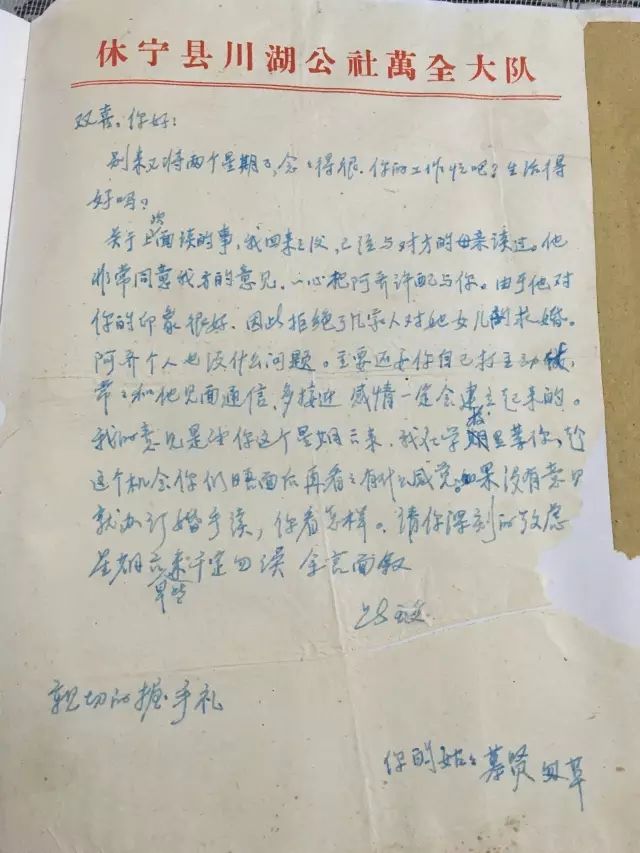 休宁县川湖公社萬全大队
双喜：你好：
别来又将两个星期了，念念得很，你的工作忙吧？生活得
好吗？
关于上次面谈的事，我回来之后，已经与对方的母亲谈过。他
非常同意我方的意见，一心把阿乔许配与你。由于他对
你的印象很好，因此拒绝了几家人对她女儿的求婚。
阿乔个人也没什么问题。主要还要你自己打主动仗，
常常和他见面通信，多接近 感情一定会建立起来的。
我的意见是让你这个星期六来，我在学校里等你，趁
这个机会你们晤面后再看看有什么感觉。如果没有意见
就办订婚手续，你看怎样。请你深刻的攷虑
星期六早些来千定勿误 余言面叙
此致
亲切的握手礼
你的姑姑慕贤 草